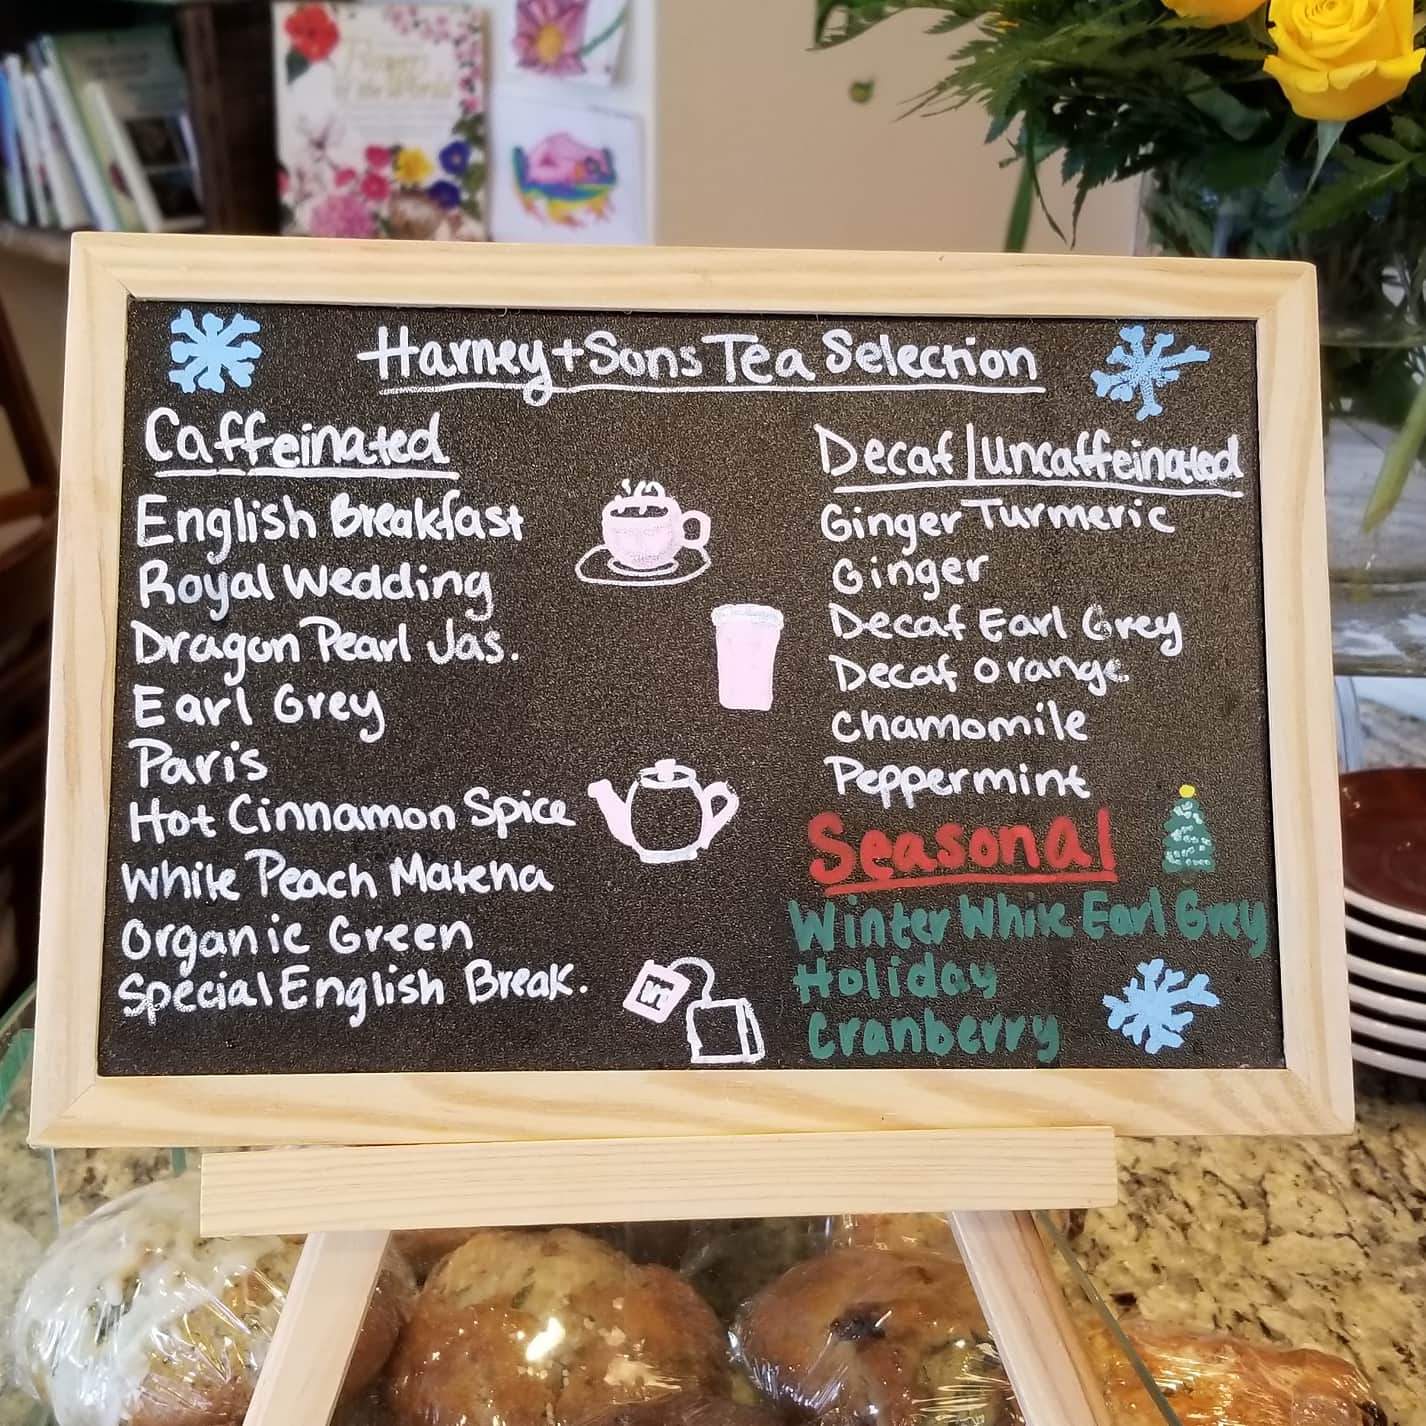 Flowers
of the World
Harney + Sons Tea Selection
Caffeinated
English Breakfast
Royal Wedding
Dragon Pearl Jas.
Earl Grey
Paris
Hot Cinnamon Spice
White Peach Matcha
Organic Green
Special English Break.
Decaf | Uncaffeinated
Ginger Turmeric
Ginger
Decaf Earl Grey
Decaf Orange
Chamomile
Peppermint
Seasonal
Winter White Earl Grey
Holiday
Cranberry